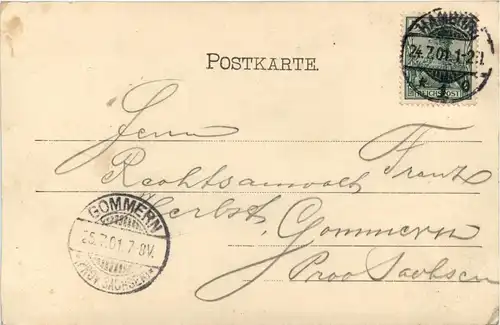 HAMBURG
24.7.01.1-2N
REICHSPOST
POSTKARTE.
Herrn Franz
Rechtsanwalt
Herbst,
Gommern
Prov Sachsen
GOMMERN
25.7.01.7-8V.
(PROV. SACHSEN)